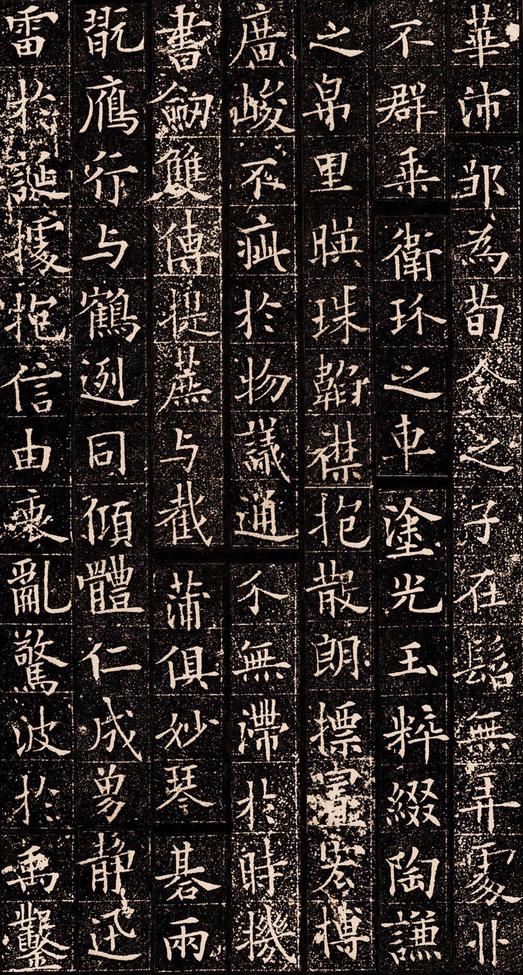 華沛邹為荀令之子在髫無弄處丱
不群乘衛玠之車塗光玉粹綴陶謙
之帛里暎珠韜襟抱散朗摽宏博
廣峻不疵於物議通介無滯於時機
書劒雙傳提蔗与截蒲俱妙琴棊兩
翫鴈行与鶴迾同傾體仁成勇静迅
雷於誕據抱信由衷亂驚波於禹鑿